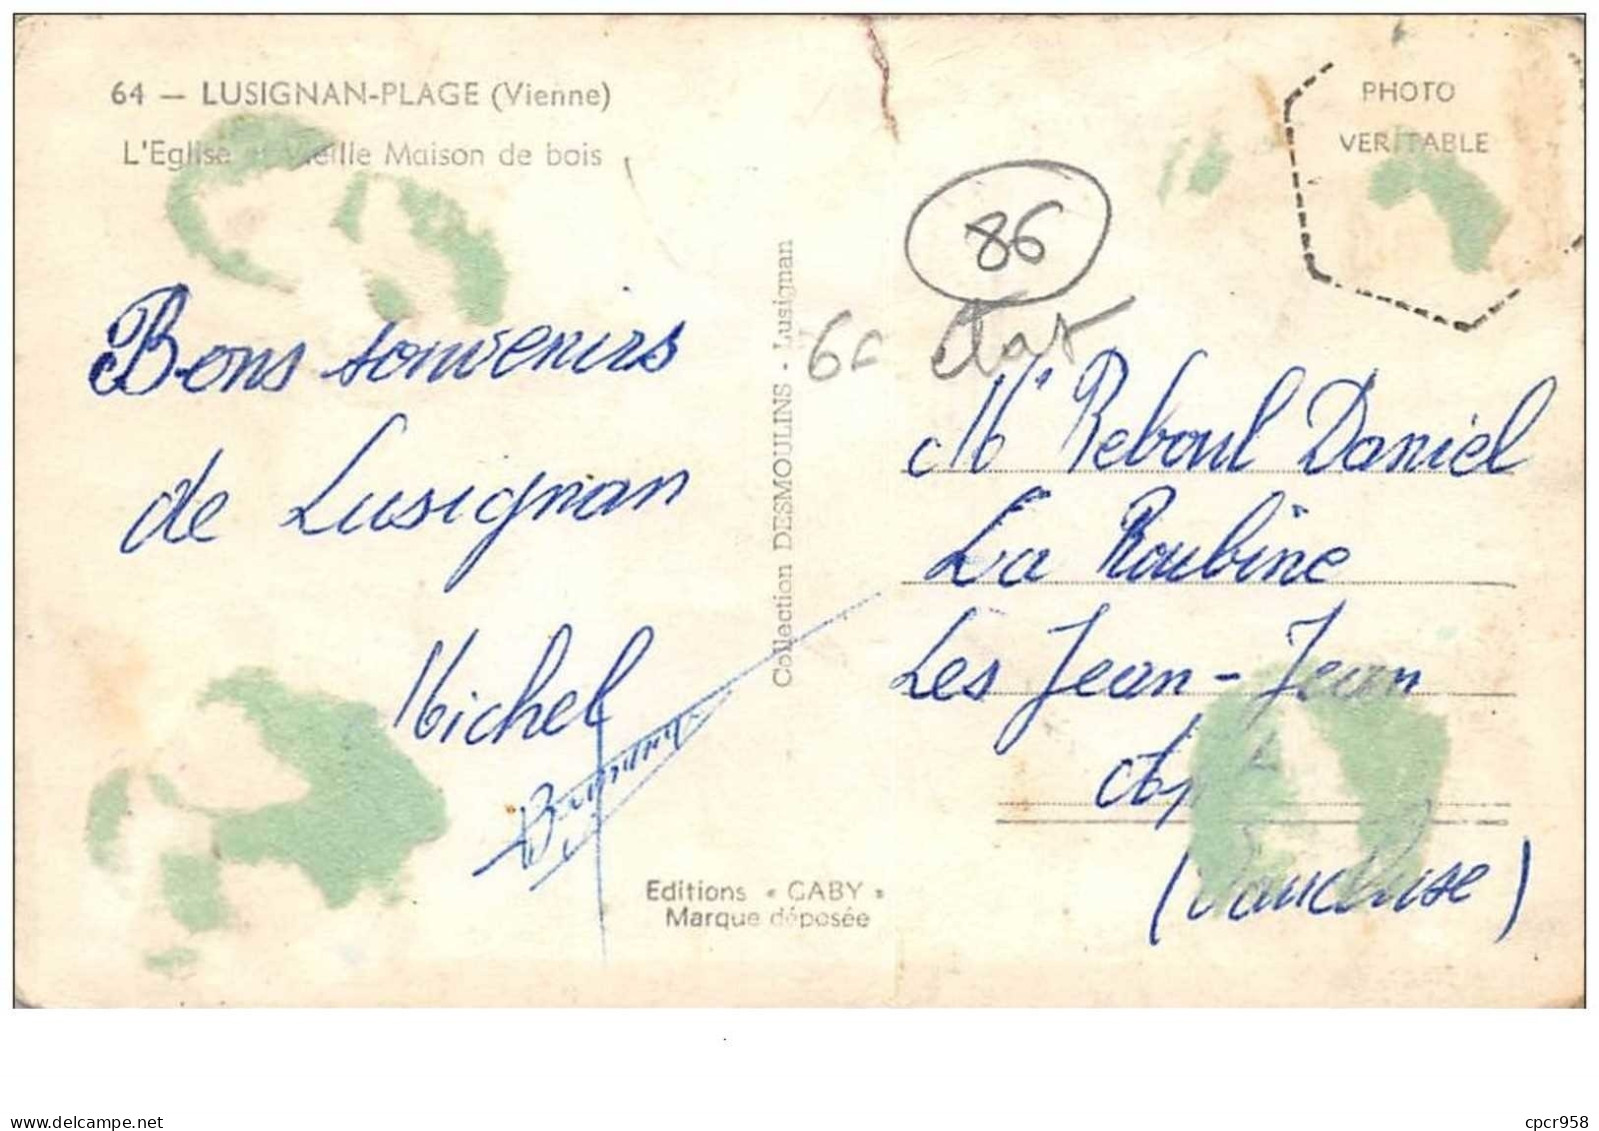 64 — LUSIGNAN-PLAGE (Vienne)
L'Eglise et Vieille Maison de bois
PHOTO
VERITABLE
86
6c état
Bons souvenirs
de Lusignan
Michel
Collection DESMOULINS - Lusignan
Mr Reboul Daniel
La Roubine
Les Jean-Jean
(Vaucluse)
Editions « GABY »
Marque déposée
www.delcampe.net
cpcr958